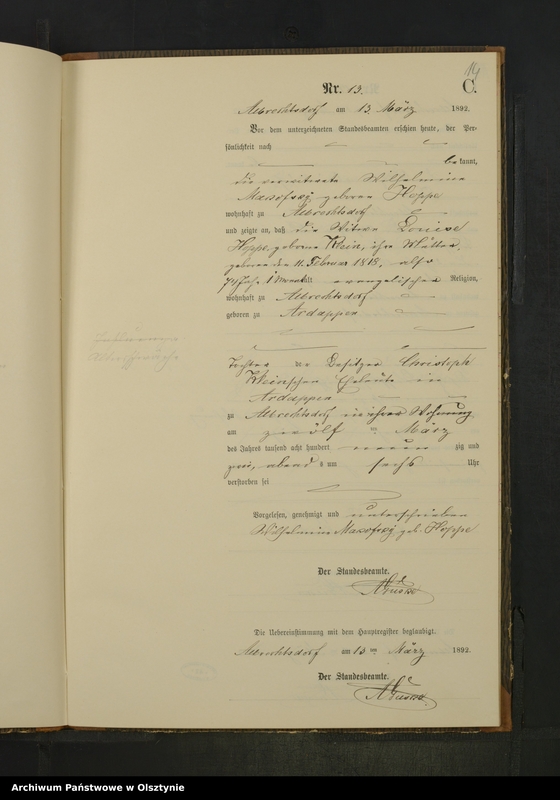 14
Nr. 13.
C.
Albrechtsdorf am 13. März 1892.
Vor dem unterzeichneten Standesbeamten erschien heute, der Per-
sönlichkeit nach
bekannt,
die verwitwete Wilhelmine
geborene Hoppe
wohnhaft zu Albrechtsdorf
und zeigte an, daß die Witwe Louise
Hoppe, geborene Klein, ihre Mutter,
geboren den 11. Februar 1818, also
74 Jahr 1 Monat alt evangelischer Religion,
wohnhaft zu Albrechtsdorf
geboren zu Ardappen
Tochter der Besitzer Christoph
Kleinschen Eheleute in
Ardappen
zu Albrechtsdorf in ihrer Wohnung
am zwölf ten März
des Jahres tausend acht hundert neun zig und
zwei, abends um sechs Uhr
verstorben sei
Vorgelesen, genehmigt und unterschrieben
Wilhelmine geb. Hoppe
Der Standesbeamte.
Die Uebereinstimmung mit dem Hauptregister beglaubigt.
Albrechtsdorf am 13 ten März 1892.
Der Standesbeamte.
Archiwum Państwowe w Olsztynie